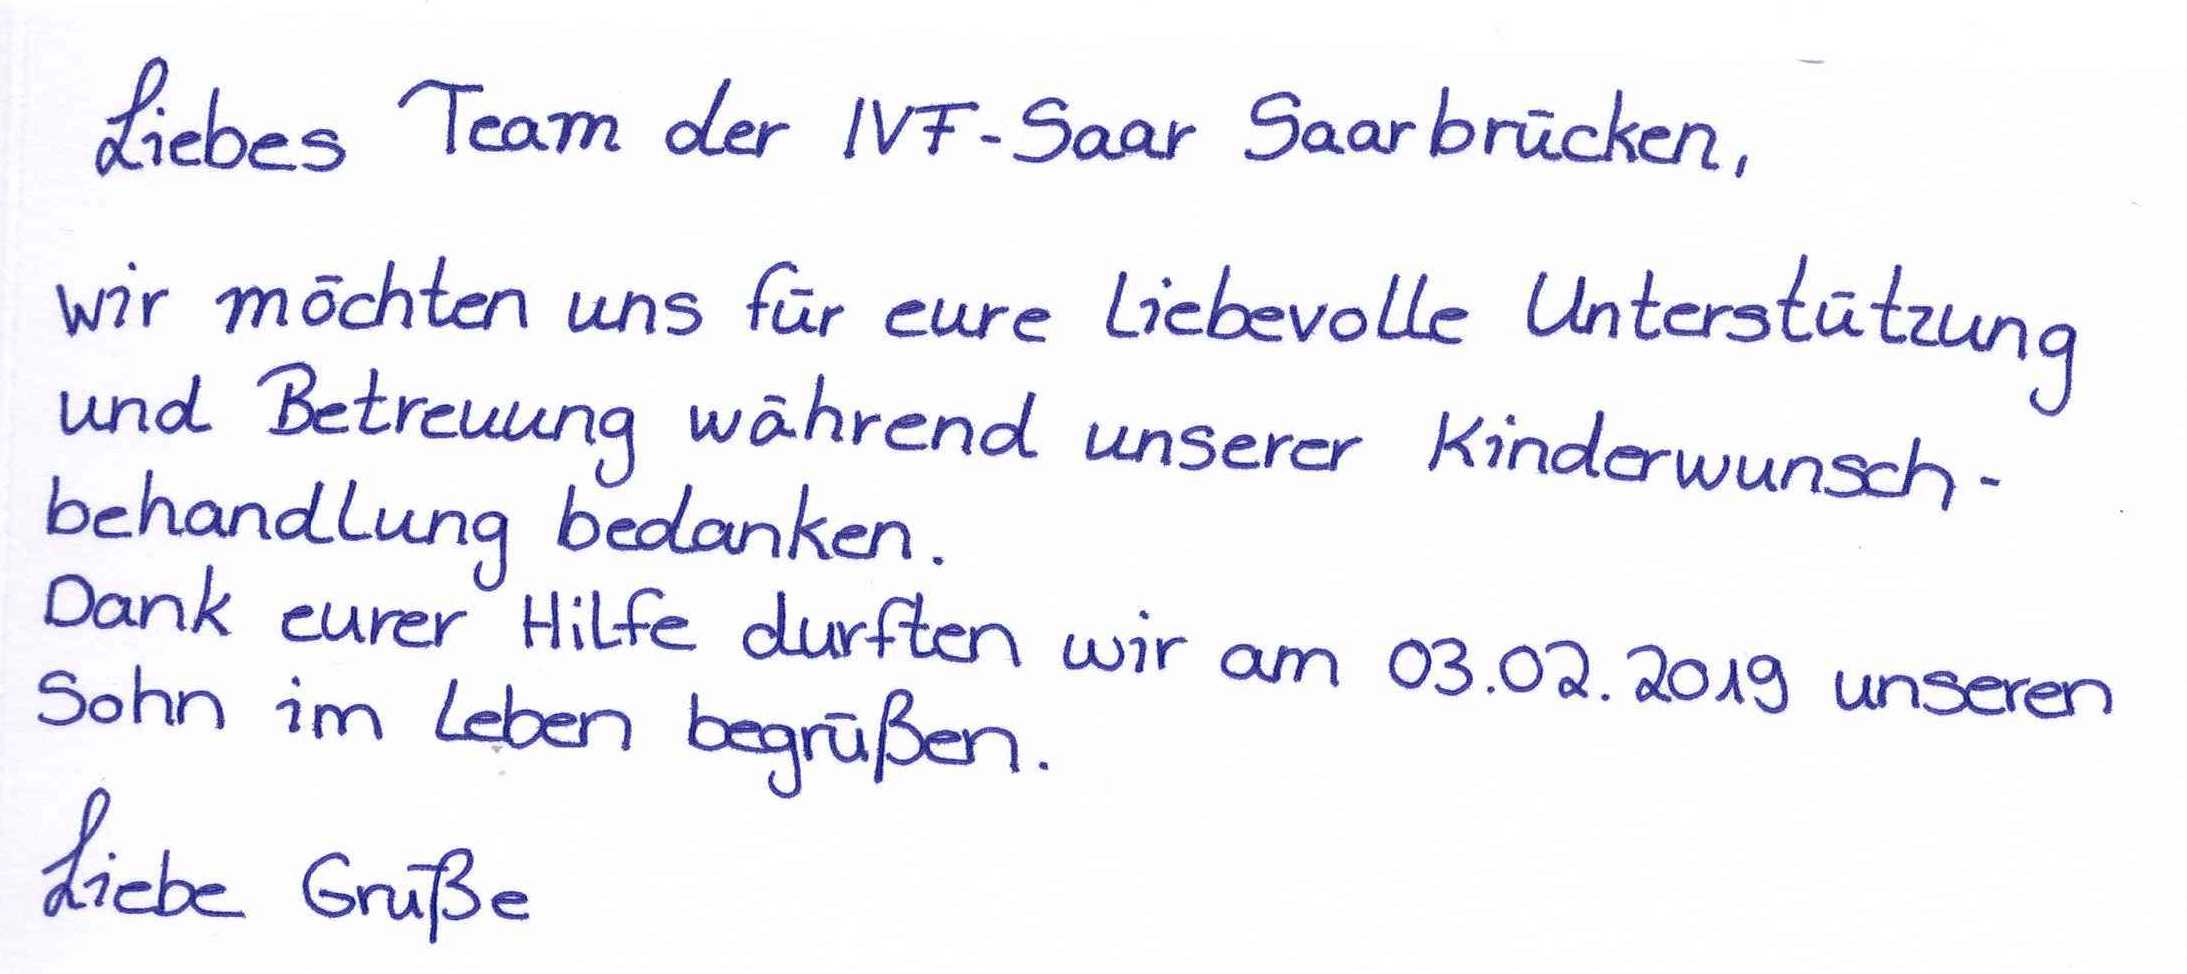 Liebes Team der IVF-Saar Saarbrücken,
wir möchten uns für eure liebevolle Unterstützung
und Betreuung während unserer Kinderwunsch-
behandlung bedanken.
Dank eurer Hilfe durften wir am 03.02.2019 unseren
Sohn im Leben begrüßen.
Liebe Grüße